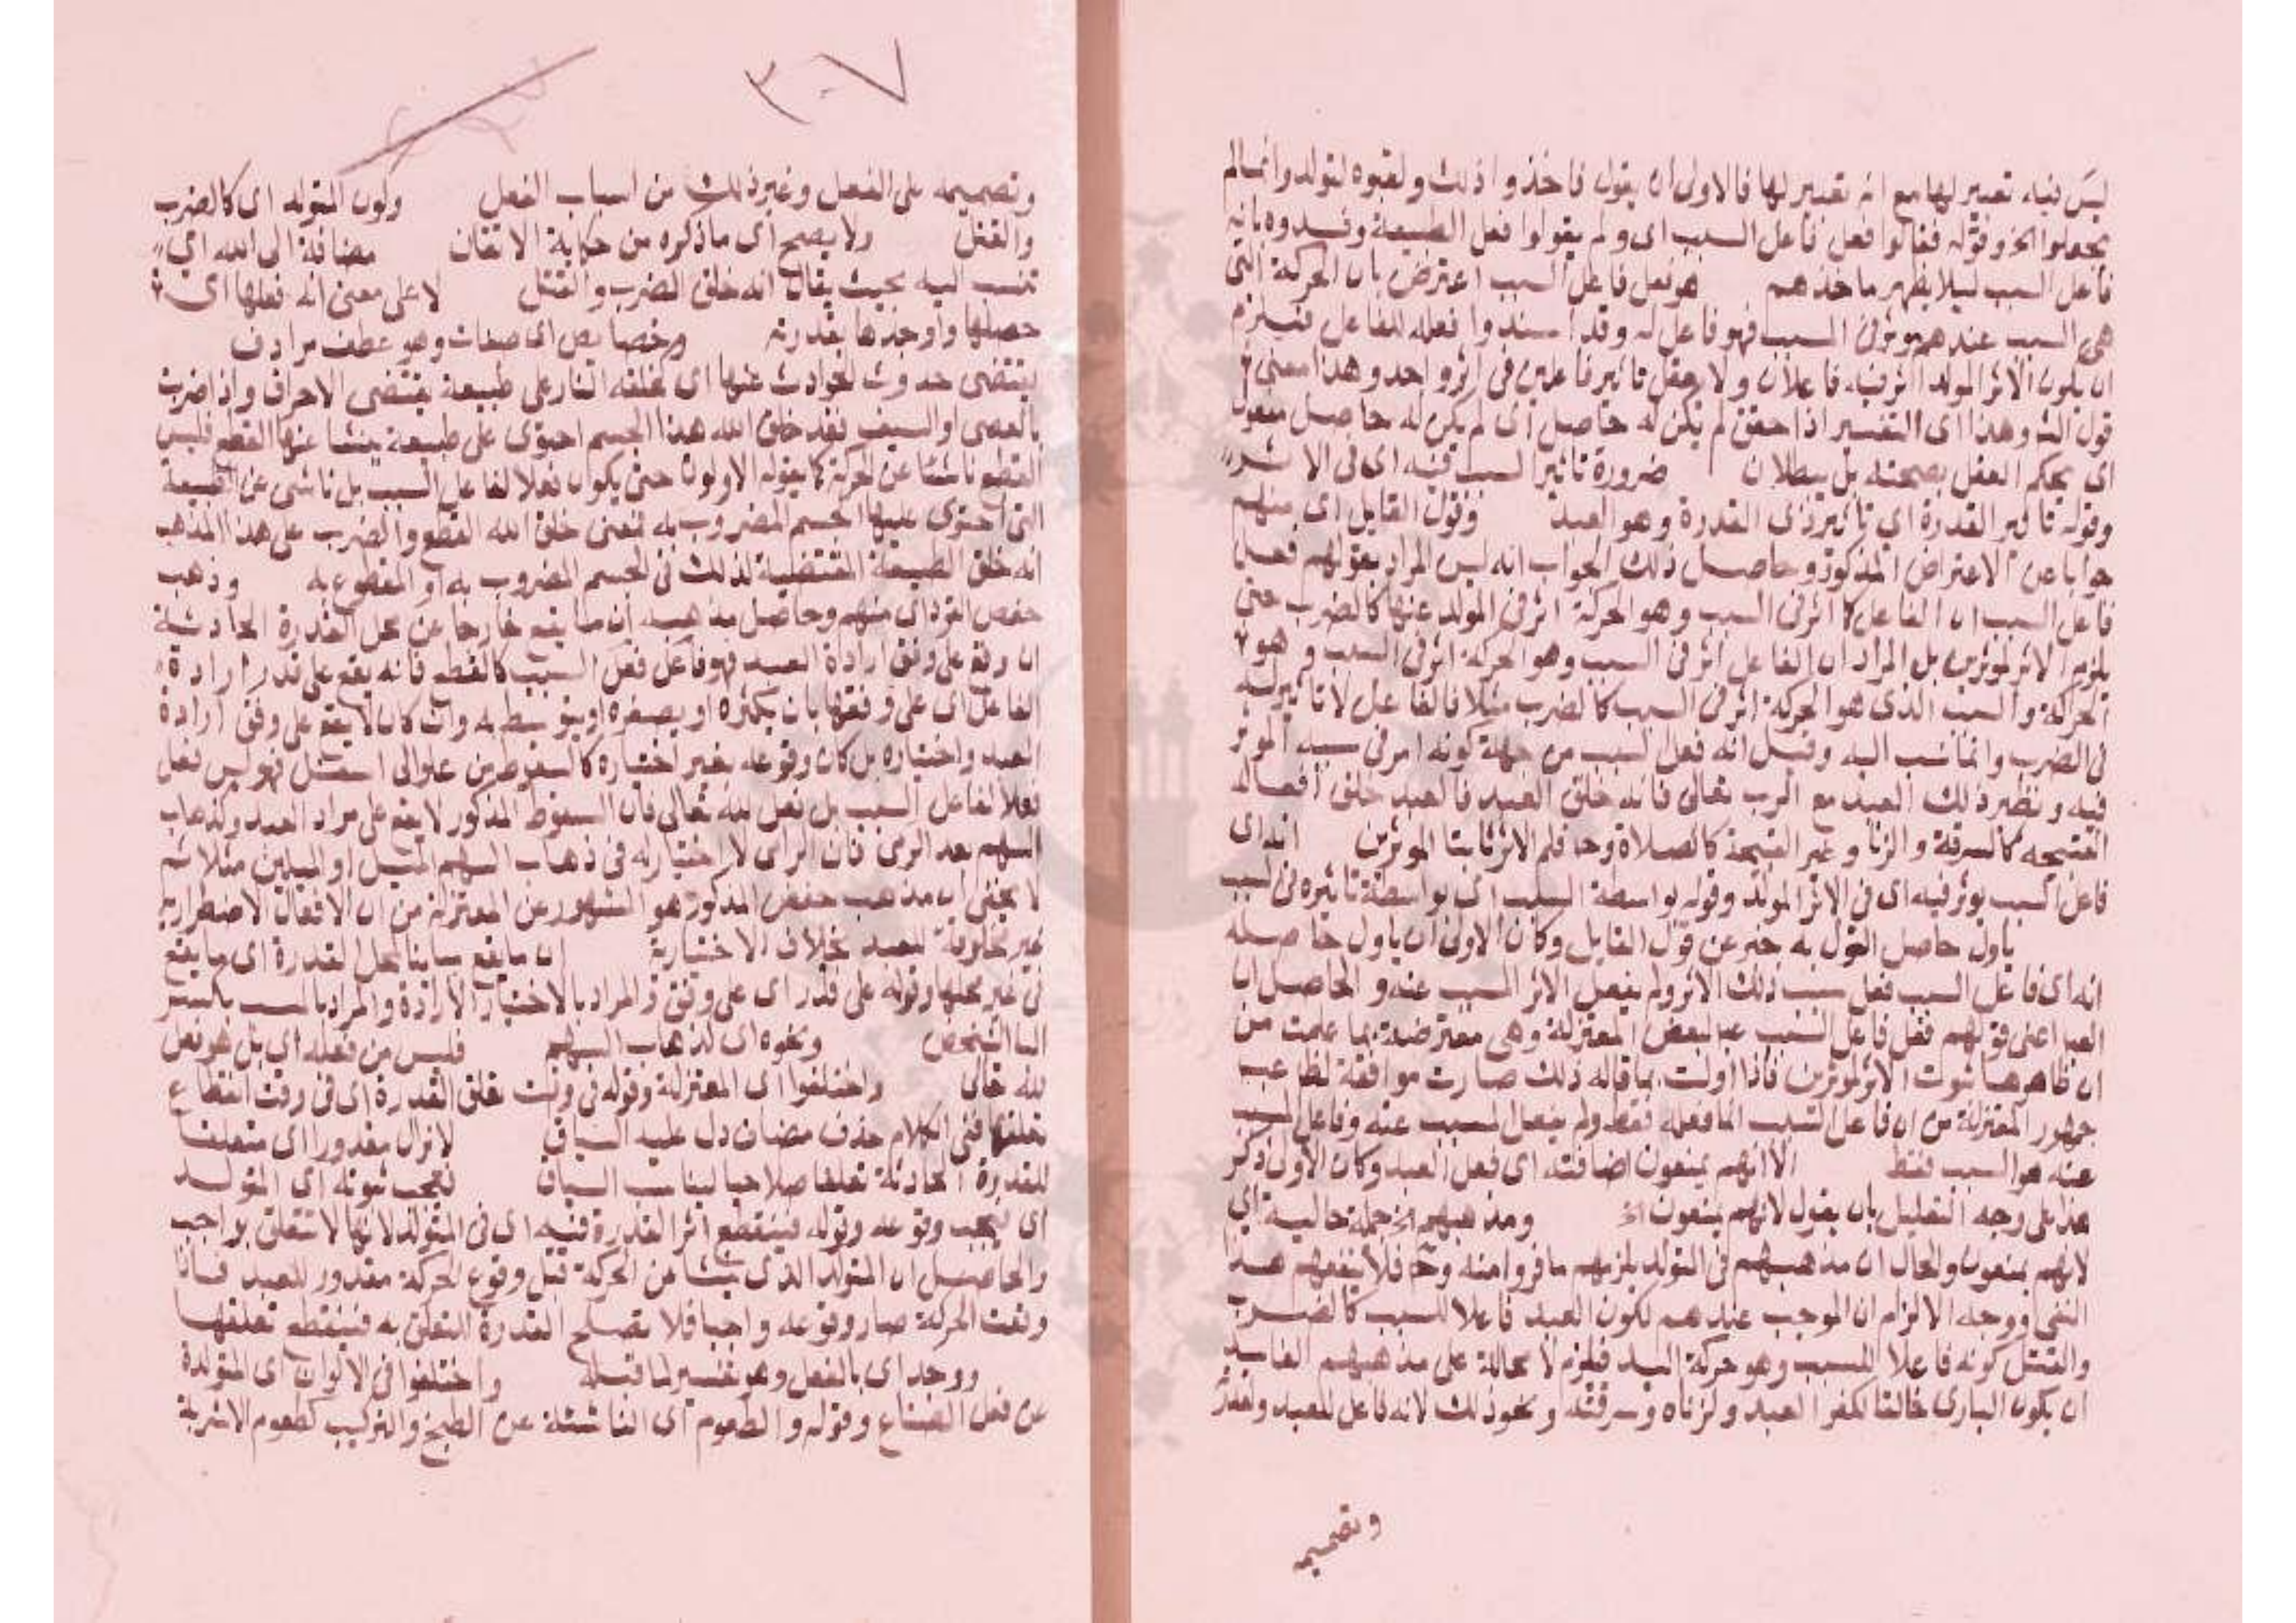 ليس فيه تعبير لها مع انه تعبير لها فالاولى ان يقول فاخذوا ذلك ولقبوه لتولد وانما لم
يجعلوا الخ وقوله فقالوا فعل فاعل السبب اى ولم يقولوا فعل الطبيعة وفسدوه بانه
فاعل السبب ليلا يظهر ماخذهم هو فعل فاعل السبب اعترض بان الحركة التى
هى السبب عندهم موثر فى المسبب فهو فاعل له وقد اسندوا فعله للفاعل فيلزم
ان يكون الاثر المولد اثر فيه فاعلان ولا يعقل تاثير فاعلين فى اثر واحد وهذا معنى
قول الش وهذا اى التفسير اذا حقق لم يكن له حاصل اى لم يكن له حاصل معقول
اى يحكم العقل بصحته بل ببطلان ضرورة تاثير السبب فيه اى فى الاثر
وقوله تاثير القدرة اى تاثير ذى القدرة وهو العبد وقول القايل اى منهم
جوابا عن الاعتراض المذكور وحاصل ذلك الجواب انه ليس المراد بقولهم فعل
فاعل السبب ان الفاعل كما اثر فى السبب وهو الحركة اثر فى المولد عنها كالضرب حتى
يلزم الاثر لموثرين بل المراد ان الفاعل اثر فى السبب وهو الحركة اثر فى السبب وهو
الحركة والسبب الذى هو الحركة اثر فى المسبب كالضرب مثلا فالفاعل لا تاثير له
فى الضرب وانما نسب اليه وقيل انه فعل المسبب من جهة كونه اثر فى سببه الموثر
فيه ونظير ذلك العبد مع الرب تعالى فانه خلق العبد فالعبد خلق افعاله
القبيحه كالسرقة والزنا وغير القبيحة كالصلاة وحا فلم الاثر ثابتا لموثرين انه اى
فاعل السبب يوثر فيه اى فى الاثر المولد وقوله بواسطة السبب اى بواسطة تاثيره فى السبب
ياول حاصل القول به خبر عن قول القايل وكان الاولى ان ياول حاصله
انه اى فاعل السبب فعل سبب ذلك الاثر ولم يفعل الاثر المسبب عنه والحاصل ان
العبد اعنى قولهم فعل فاعل السبب لبعض المعتزلة وهى معترضة بما علمت من
ان ظاهرها ثبوت الاثر لموثرين فاذا اولت بما قاله ذلك صارت موافقة لمذهب
جمهور المعتزلة من ان فاعل السبب انما فعله فقط ولم يفعل المسبب عنه وفاعل المسبب
عنه هو السبب فقط الا انهم يمنعون اضافته اى فعل العبد وكان الاولى ذكر
هذا على وجه التعليل بان يقول لانهم يمنعون الخ ومذهبهم الخ جملة حالية اى
لانهم يمنعون والحال ان مذهبهم فى التولد يلزمهم ما فروا منه وحا فلا ينفعهم هذا
النفى ووجه الالزام ان الموجب عندهم لكون العبد فاعلا للمسبب كالضرب
والقتل كونه فاعلا للسبب وهو حركة اليد فيلزم لا محالة على مذهبهم الفاسد
ان يكون البارى خالقا لكفر العبد ولزناه وسرقته ونحو ذلك لانه فاعل للعبد ولقدرته
وتصميمه
٣٠٧
وتصميمه على الفعل وغير ذلك من اسباب الفعل ولون المتوله اى كالضرب
والقتل ولا يصح اى ما ذكره من حكاية الاتفاق مضافة الى الله اى
تنسب اليه بحيث يقال انه خلق الضرب والقتل لا على معنى انه فعلها اى
حصلها واوجدها بقدرته وخصايص اى صفات وهو عطف مرادف
يقتضى حدوث الحوادث عنها اى كخلقه النار على طبيعة يقتضى الاحراق واذا ضربت
بالعصى او السيف فقد خلق الله هذا الجسم احتوى على طبيعة ينشا عنها القطع فليس
القطع ناشئا عن الحركة كما يقوله الاولون حتى يكون فعلا لفاعل السبب بل ناشى عن الطبيعة
التى احتوى عليها الجسم المضروب به فمعنى خلق الله القطع والضرب على هذا المذهب
انه خلق الطبيعة المقتضية لذلك فى الجسم المضروب به او المقطوع به وذهب
حفص الفرد اى منهم وحاصل مذهبه ان ما يقع خارجا عن محل القدرة الحادثة
ان وقع على وفق ارادة العبد فهو فاعل فعل السبب كالقطع فانه يقع على قدر ارادة
الفاعل اى على وفقها بان يكثره او يصغره او يتوسط به وان كان لا يقع على وفق ارادة
العبد واختياره بل كان وقوعه بغير اختياره كالسقوط من علو الى اسفل فهو ليس فعل
فعلا لفاعل السبب بل فعل منه تعالى فان السقوط المذكور لا يقع على مراد العبد وكذهاب
السهم بعد الرمى فان الرامى لا اختيار له فى ذهاب السهم لميل او الميلين مثلا ثم
لا يخفى ان مذهب حفص المذكور هو المشهور عن المعتزلة من ان الافعال الاضطرارية
غير مخلوقة للعبد بخلاف الاختيارية ان ما يقع مباينا لمحل القدرة اى ما يقع
فى غير محلها وقوله على قدر اى على وفق والمراد بالاختيار الارادة والمراد بالسبب
الشخص ونحوه اى كذهاب السهم فليس من فعله اى بل هو فعل
لله تعالى واختلفوا اى المعتزلة وقوله فى وقت تعلق القدرة اى فى وقت انقطاع
تعلقها ففى الكلام حذف مضاف دل عليه السياق لا نزال مقدورا اى متعلقا
للقدرة الحادثة تعلقا صلاحيا ليناسب السياق فيجب ثبوته اى المتولد
اى فيجب وقوعه وقوله فينقطع اثر القدرة فيه اى فى المتولد لانها لا تتعلق بواجب
والحاصل ان المتولد الذى ينشا من الحركة قبل وقوع الحركة مقدور للعبد فاذا
وقعت الحركة صار وقوعه واجبا فلا تصلح القدرة التعلق به فينقطع تعلقها
ووجد اى بالفعل وهو تفسير لما قبله واختلفوا فى الالوان اى المتولدة
عن فعل الصناع وقوله والطعوم اى الناشئة عن الطبخ والتركيب كطعوم الاشربة